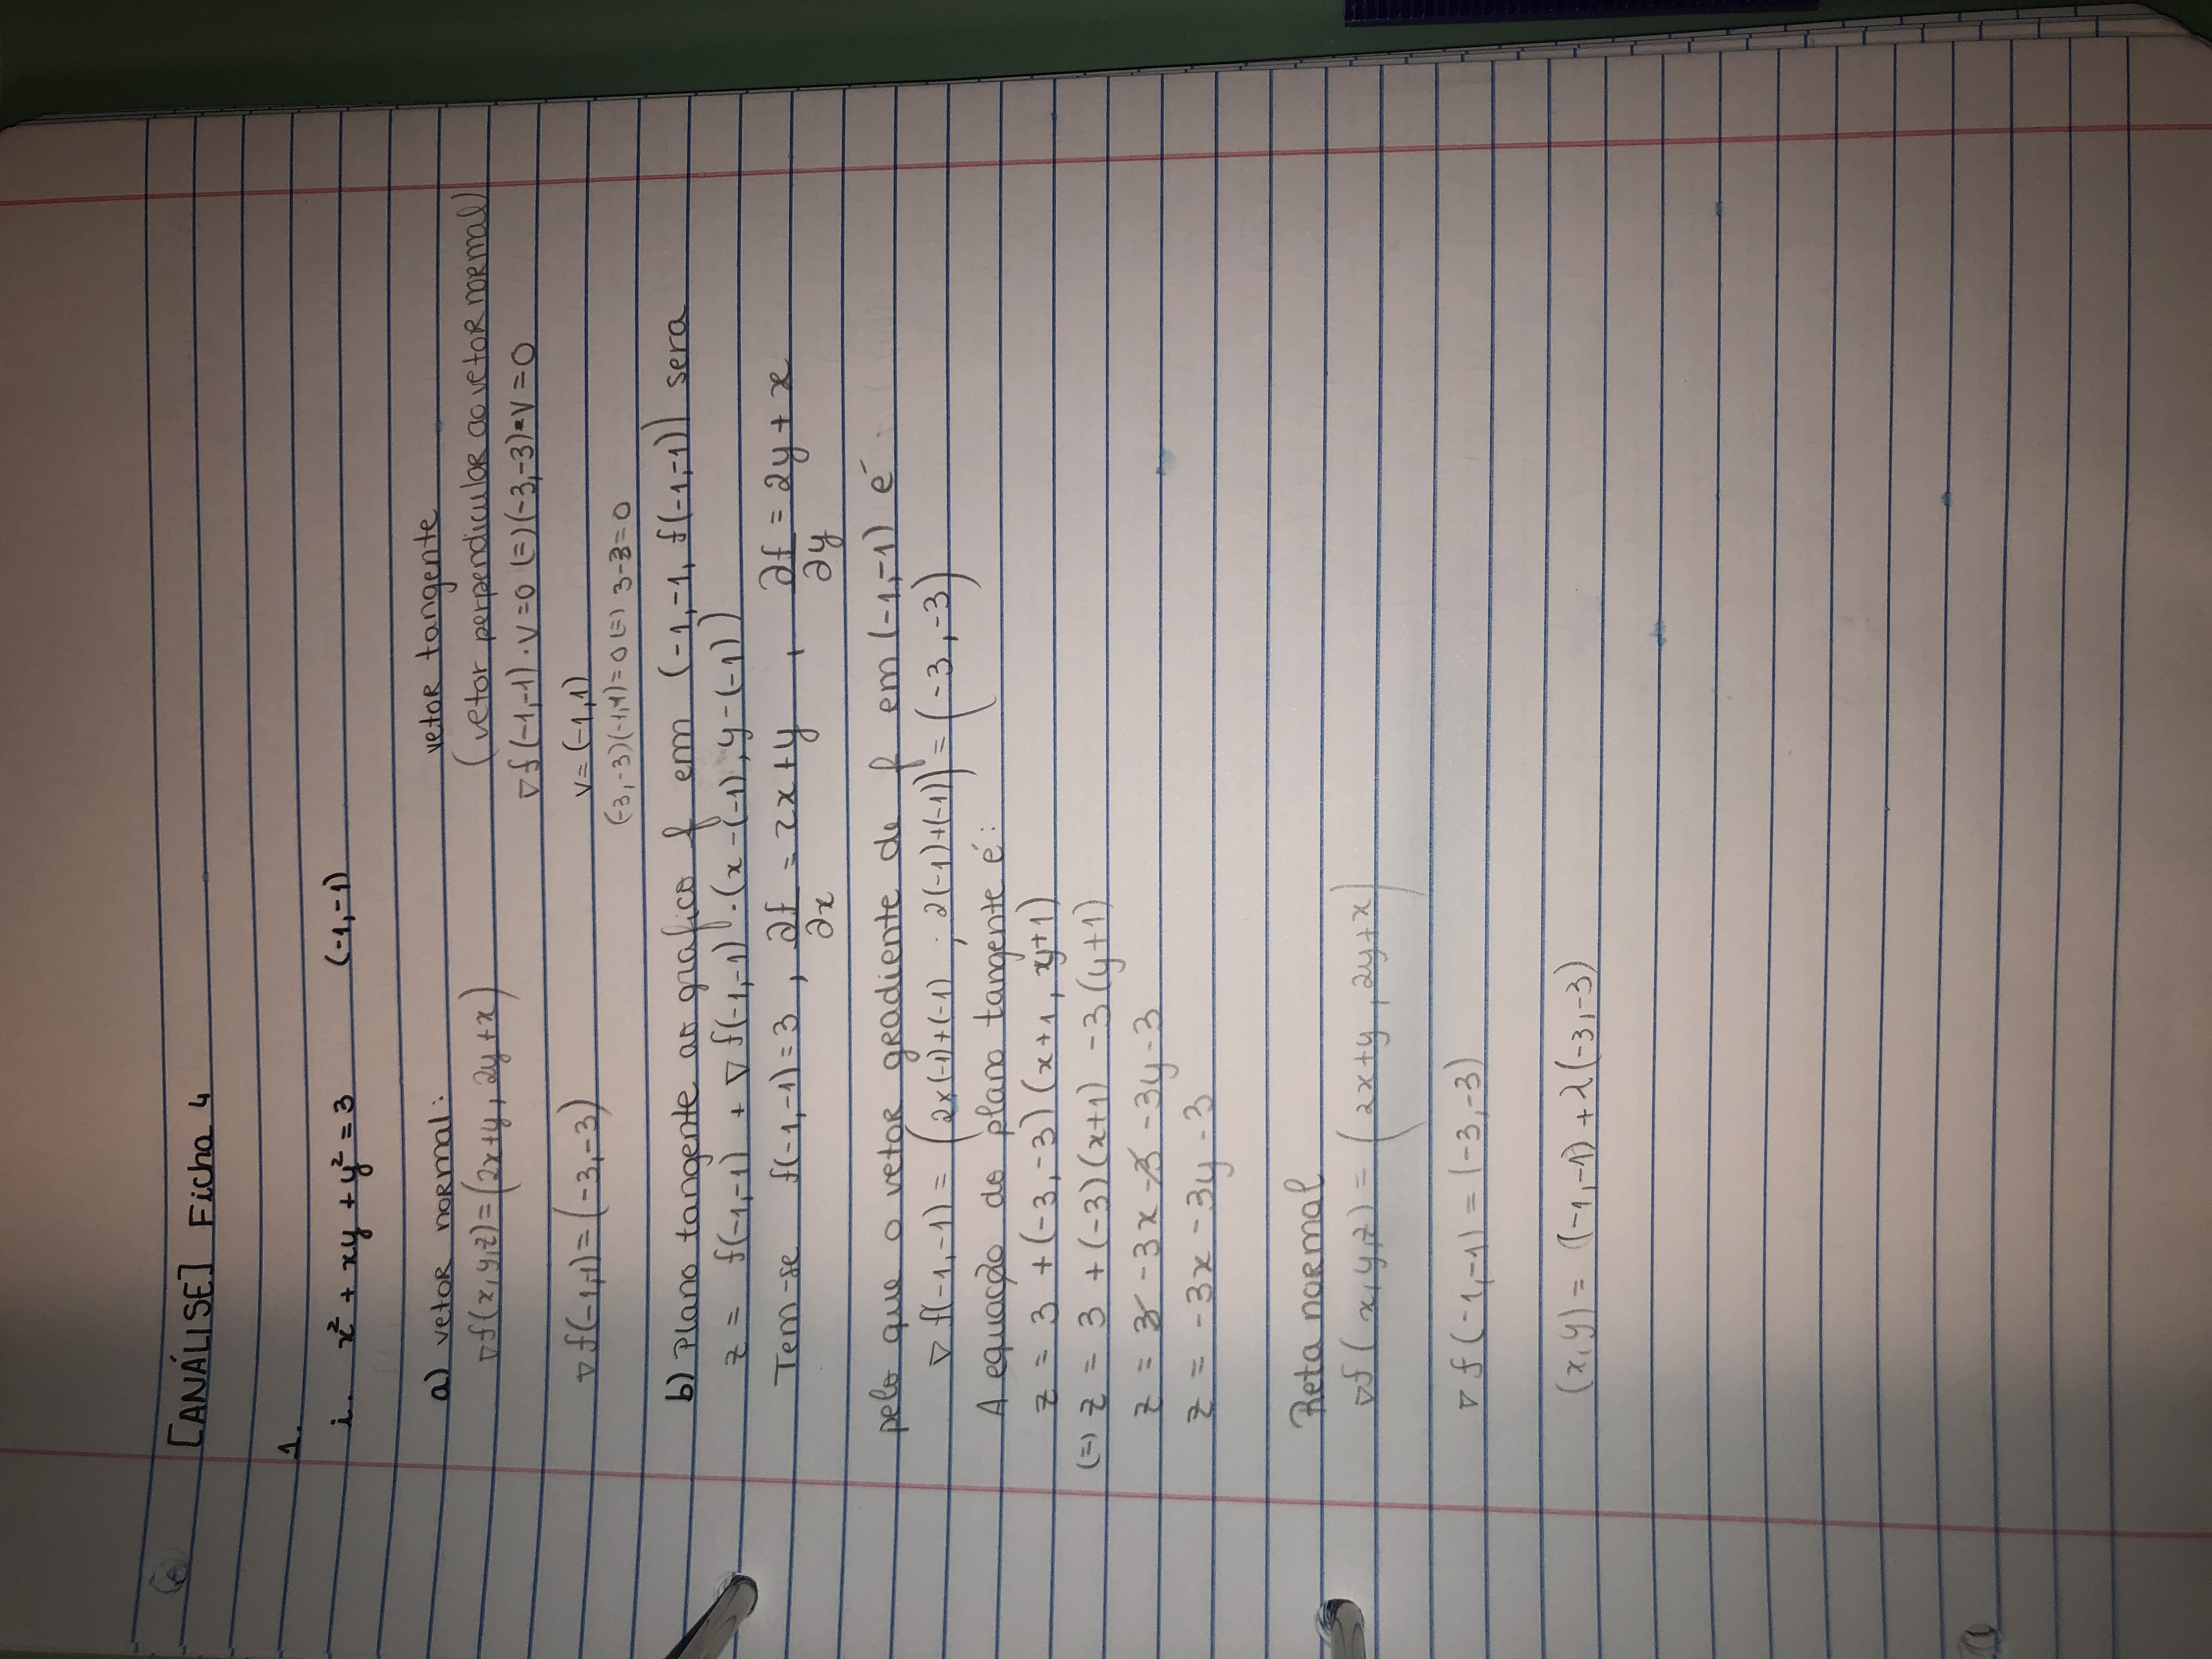 [ANÁLISE] Ficha 4
1.
i. x² + xy + y² = 3 (-1,-1)
a) vetor normal:
∇f(x,y,z)=(2x+y, 2y+x)
∇f(-1,-1)=(-3,-3)
vetor tangente
(vetor perpendicular ao vetor normal)
∇f(-1,-1)·v=0 (=) (-3,-3)·v=0
v=(-1,1)
(-3,-3)(-1,1)=0 (=) 3-3=0
b) Plano tangente ao grafico f em (-1,-1, f(-1,-1)) sera
z = f(-1,-1) + ∇f(-1,-1)·(x-(-1), y-(-1))
Tem-se f(-1,-1)=3, ∂f/∂x = 2x+y, ∂f/∂y = 2y+x
pelo que o vetor gradiente de f em (-1,-1) é
∇f(-1,-1) = (2x(-1)+(-1) ; 2(-1)+(-1)) = (-3,-3)
A equação do plano tangente é:
z = 3 +(-3,-3)(x+1, y+1)
(=) z = 3 +(-3)(x+1) -3(y+1)
z = 3 -3x -3 -3y -3
z = -3x -3y -3
Reta normal
∇f(x,y,z) = (2x+y, 2y+x)
∇f(-1,-1) = (-3,-3)
(x,y) = (-1,-1) + λ(-3,-3)